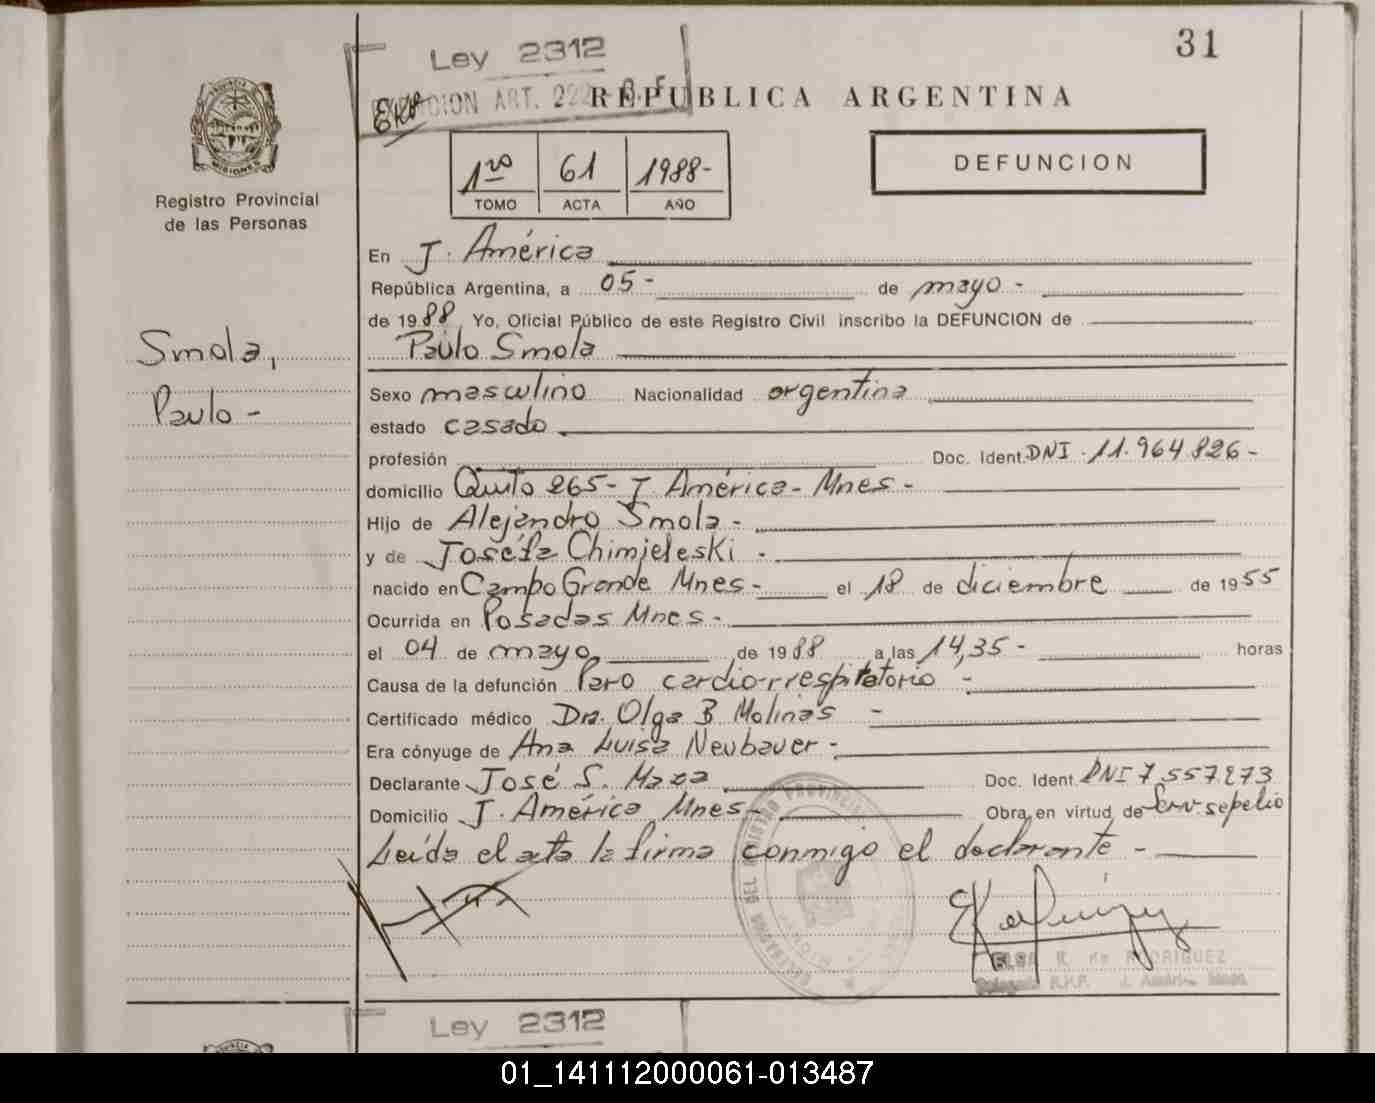 31
Ley 2312
ART. 222
REPUBLICA ARGENTINA
PROVINCIA
MISIONES
Registro Provincial
de las Personas
1ro 61 1988-
TOMO ACTA AÑO
DEFUNCION
En J. América
República Argentina, a 05- de mayo -
de 1988 Yo, Oficial Público de este Registro Civil inscribo la DEFUNCION de
Paulo Smola
Smola,
Paulo -
Sexo masculino Nacionalidad argentina
estado casado
profesión Doc. Ident. DNI - 11.964 826 -
domicilio Quito 265 - J. América - Mnes -
Hijo de Alejandro Smola -
y de Josefa Chimjeleski -
nacido en Campo Grande Mnes - el 18 de diciembre de 1955
Ocurrida en Posadas Mnes -
el 04 de mayo de 1988 a las 14,35 - horas
Causa de la defunción Paro cardio-rrespitatorio -
Certificado médico Dra. Olga B Molinas -
Era cónyuge de Ana Luisa Neubauer -
Declarante José S. Maza Doc. Ident. DNI 7 557273
Domicilio J. América Mnes - Obra en virtud de Serv. sepelio
Leída el acta la firma conmigo el declarante -
ELSA R. de RODRIGUEZ
Delegada R.P.P. J. América Mnes.
Ley 2312
01_141112000061-013487